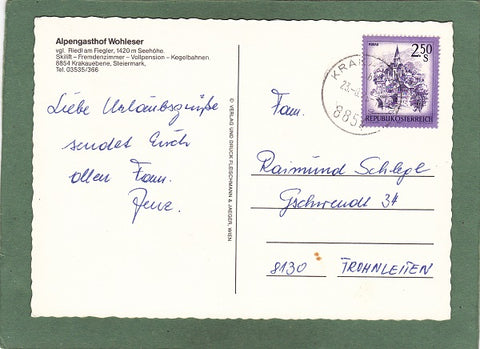 Alpengasthof Wohleser
vgl. Riedl am Fiegler, 1420 m Seehöhe.
Skilift – Fremdenzimmer – Vollpension – Kegelbahnen
8854 Krakauebene, Steiermark,
Tel. 03535/366
Liebe Urlaubsgrüße
sendet Euch
allen Fam.
© VERLAG UND DRUCK FLEISCHMANN & JAEGER, WIEN
KRA
885
2.50
S
REPUBLIK ÖSTERREICH
Fam.
Raimund Schlegl
Gschwendt 34
8130 FROHNLEITEN